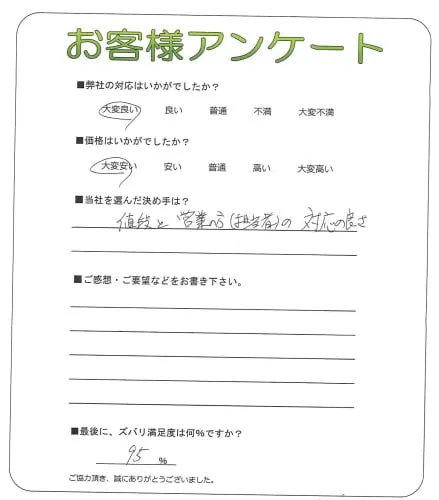 お客様アンケート
■弊社の対応はいかがでしたか？
大変良い 良い 普通 不満 大変不満
■価格はいかがでしたか？
大変安い 安い 普通 高い 大変高い
■当社を選んだ決め手は？
値段と営業の方(担当者)の対応の良さ
■ご感想・ご要望などをお書き下さい。
■最後に、ズバリ満足度は何%ですか？
95 %
ご協力頂き、誠にありがとうございました。